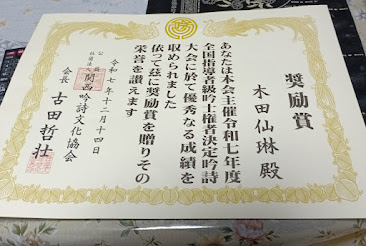 奨励賞
木田仙琳殿
あなたは本会主催令和七年度
全国指導者級吟士権者決定吟詩
大会に於て優秀なる成績を
収められました
依って茲に奨励賞を贈りその
栄誉を讃えます
令和七年十二月十四日
公益社団法人 関西吟詩文化協会
会長 古田哲壮